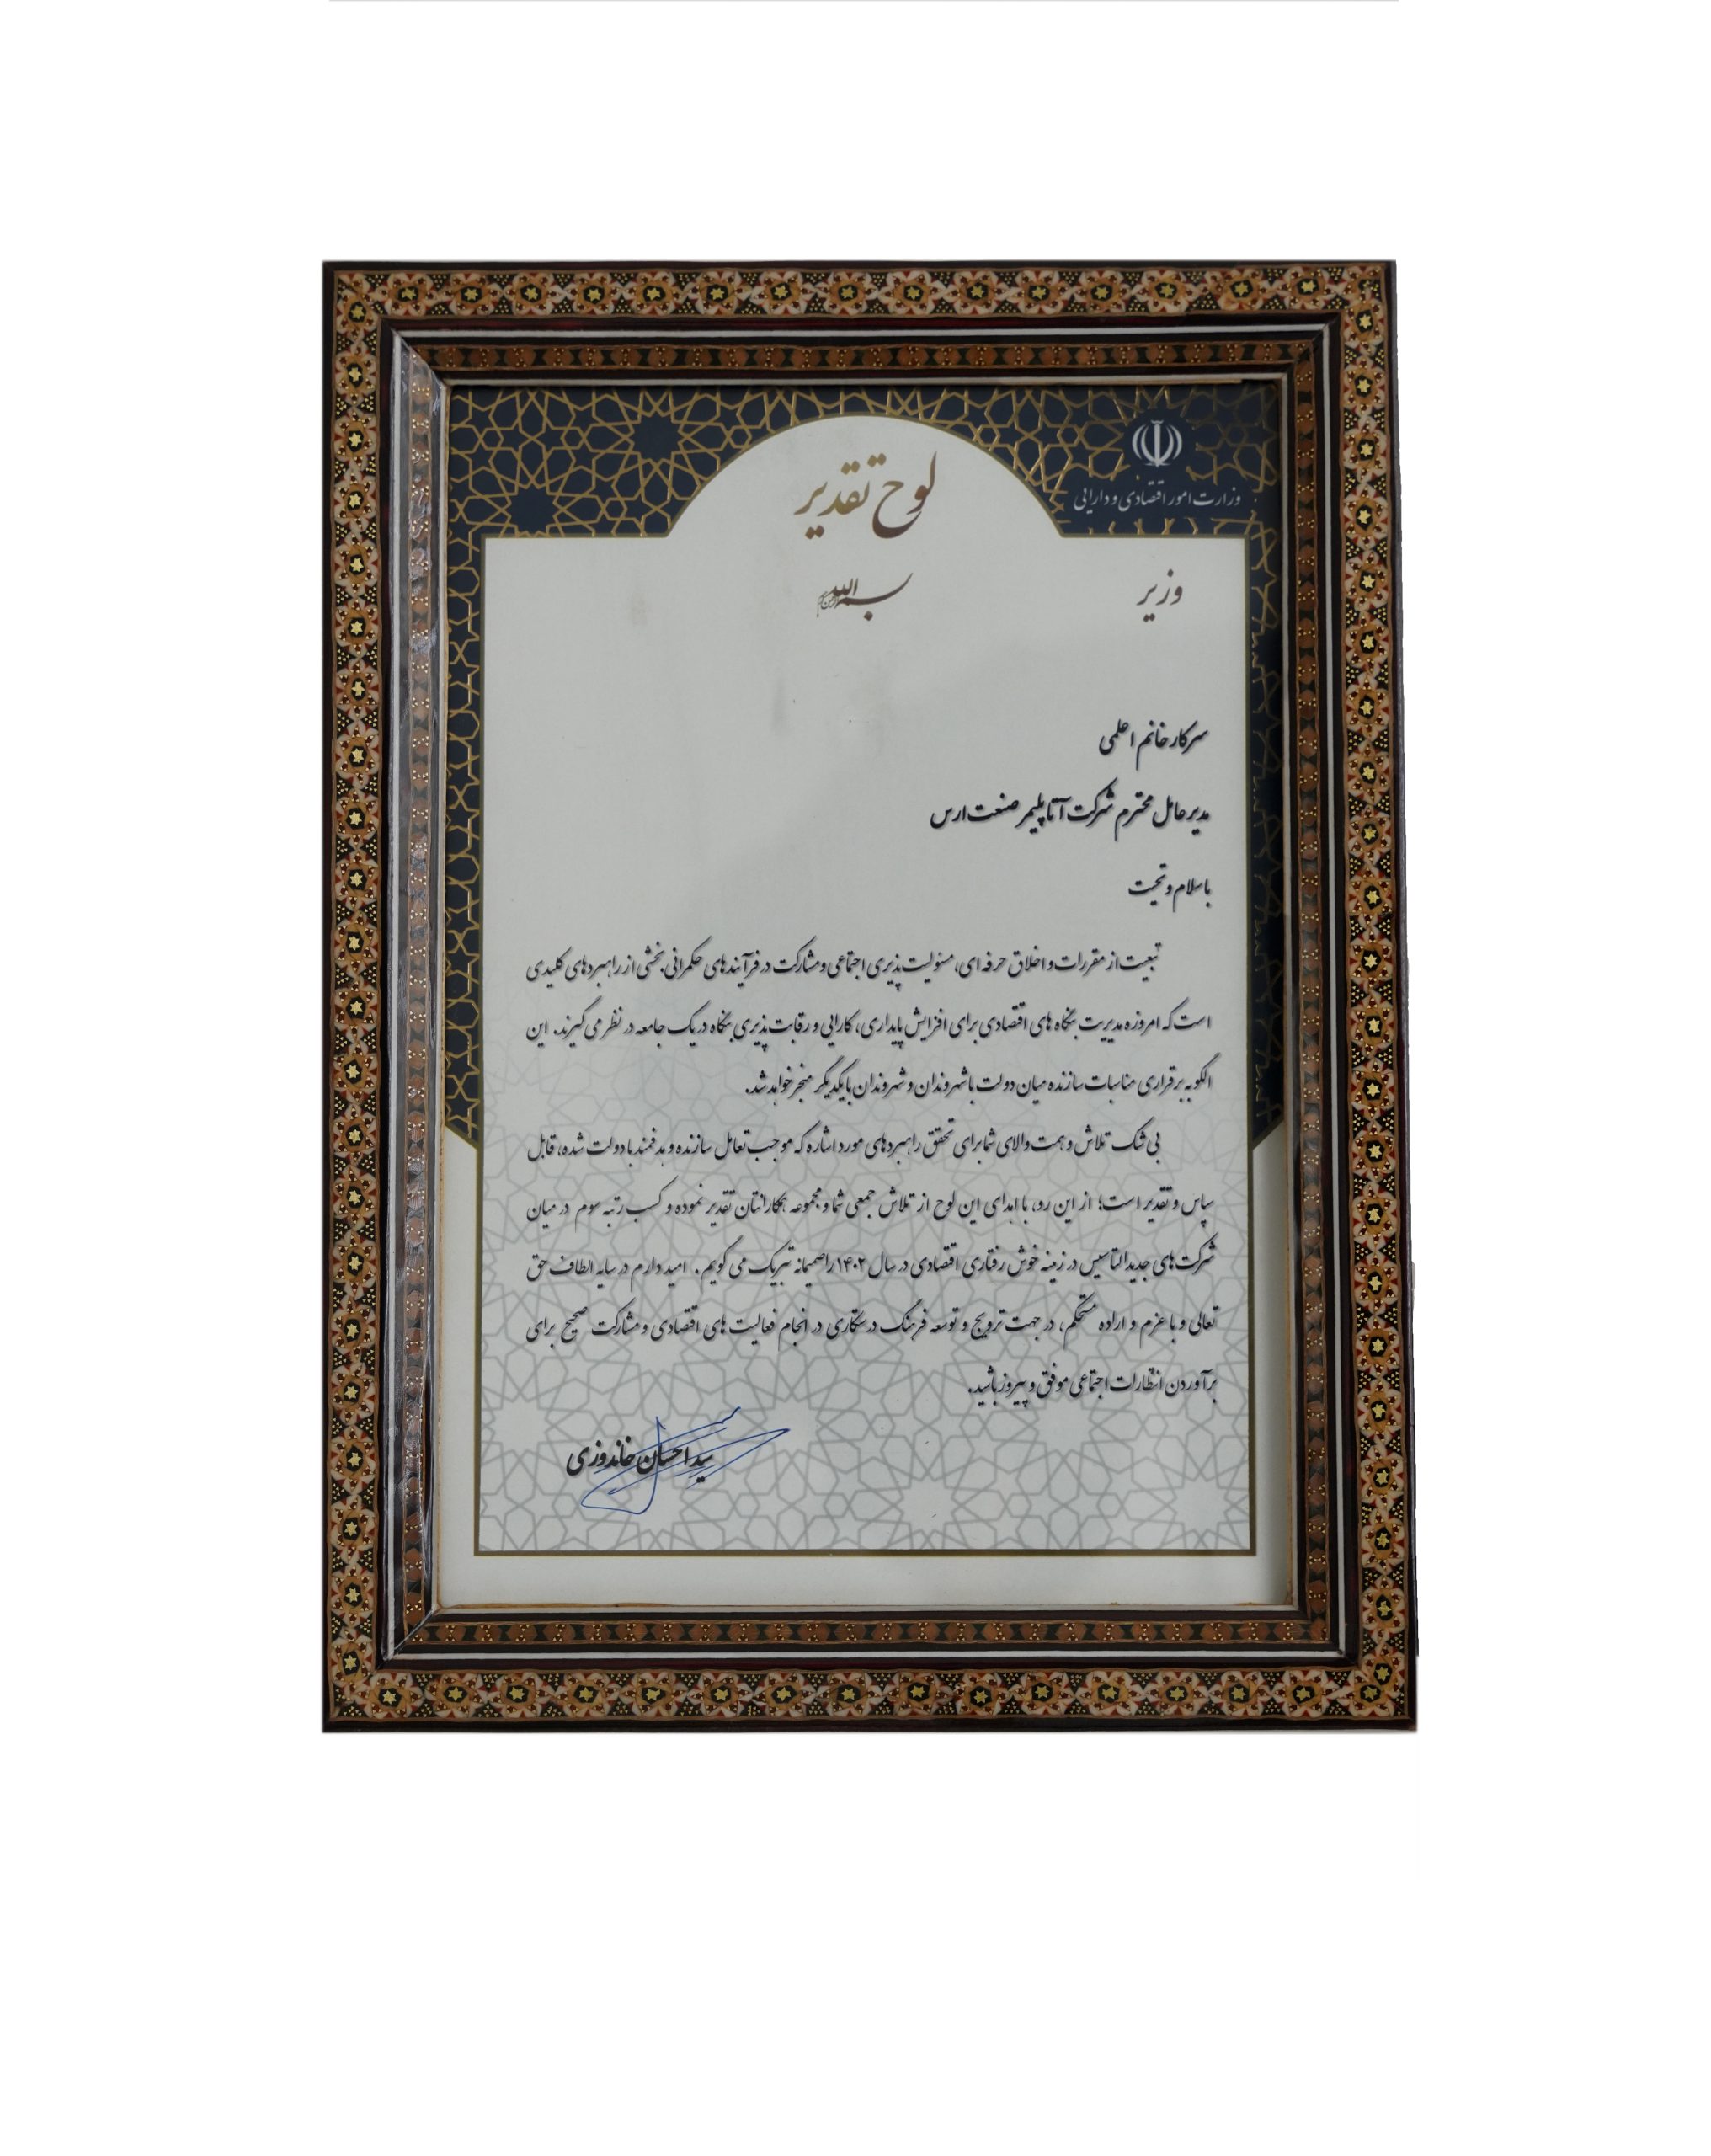 لوح تقدیر
وزارت امور اقتصادی و دارایی
بسم الله الرحمن الرحیم
وزیر
سرکار خانم اعلمی
مدیر عامل محترم شرکت آتا پلیمر صنعت ارس
با سلام و تحیت
تبعیت از مقررات و اخلاق حرفه ای، مسئولیت پذیری اجتماعی و مشارکت در فرآیندهای حکمرانی، بخشی از راهبردهای کلیدی
است که امروزه مدیریت بنگاه های اقتصادی برای افزایش پایداری، کارایی و رقابت پذیری بنگاه در یک جامعه در نظر می گیرند. این
الگو به برقراری مناسبات سازنده میان دولت با شهروندان و شهروندان با یکدیگر منجر خواهد شد.
بی شک تلاش و همت والای شما برای تحقق راهبردهای مورد اشاره که موجب تعامل سازنده و هدفمند با دولت شده، قابل
سپاس و تقدیر است؛ از این رو، با اهدای این لوح از تلاش جمعی شما و مجموعه همکارانتان تقدیر نموده و کسب رتبه سوم در میان
شرکت های جدیدالتاسیس در زمینه خوش رفتاری اقتصادی در سال ۱۴۰۲ را صمیمانه تبریک می گویم. امید دارم در سایه الطاف حق
تعالی و با عزم و اراده مستحکم، در جهت ترویج و توسعه فرهنگ درستکاری در انجام فعالیت های اقتصادی و مشارکت صحیح برای
برآوردن انتظارات اجتماعی موفق و پیروز باشید.
سید احسان خاندوزی